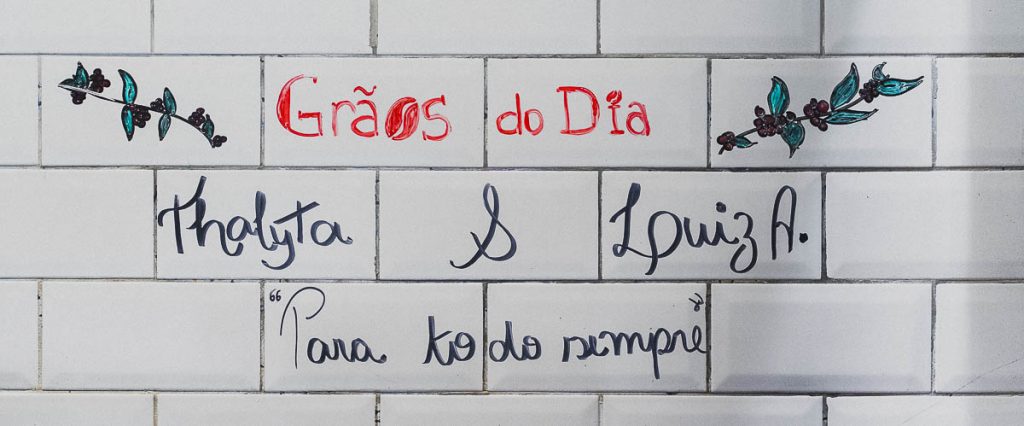 Grãos do Dia
Thalyta & Luiz A.
"Para todo sempre"